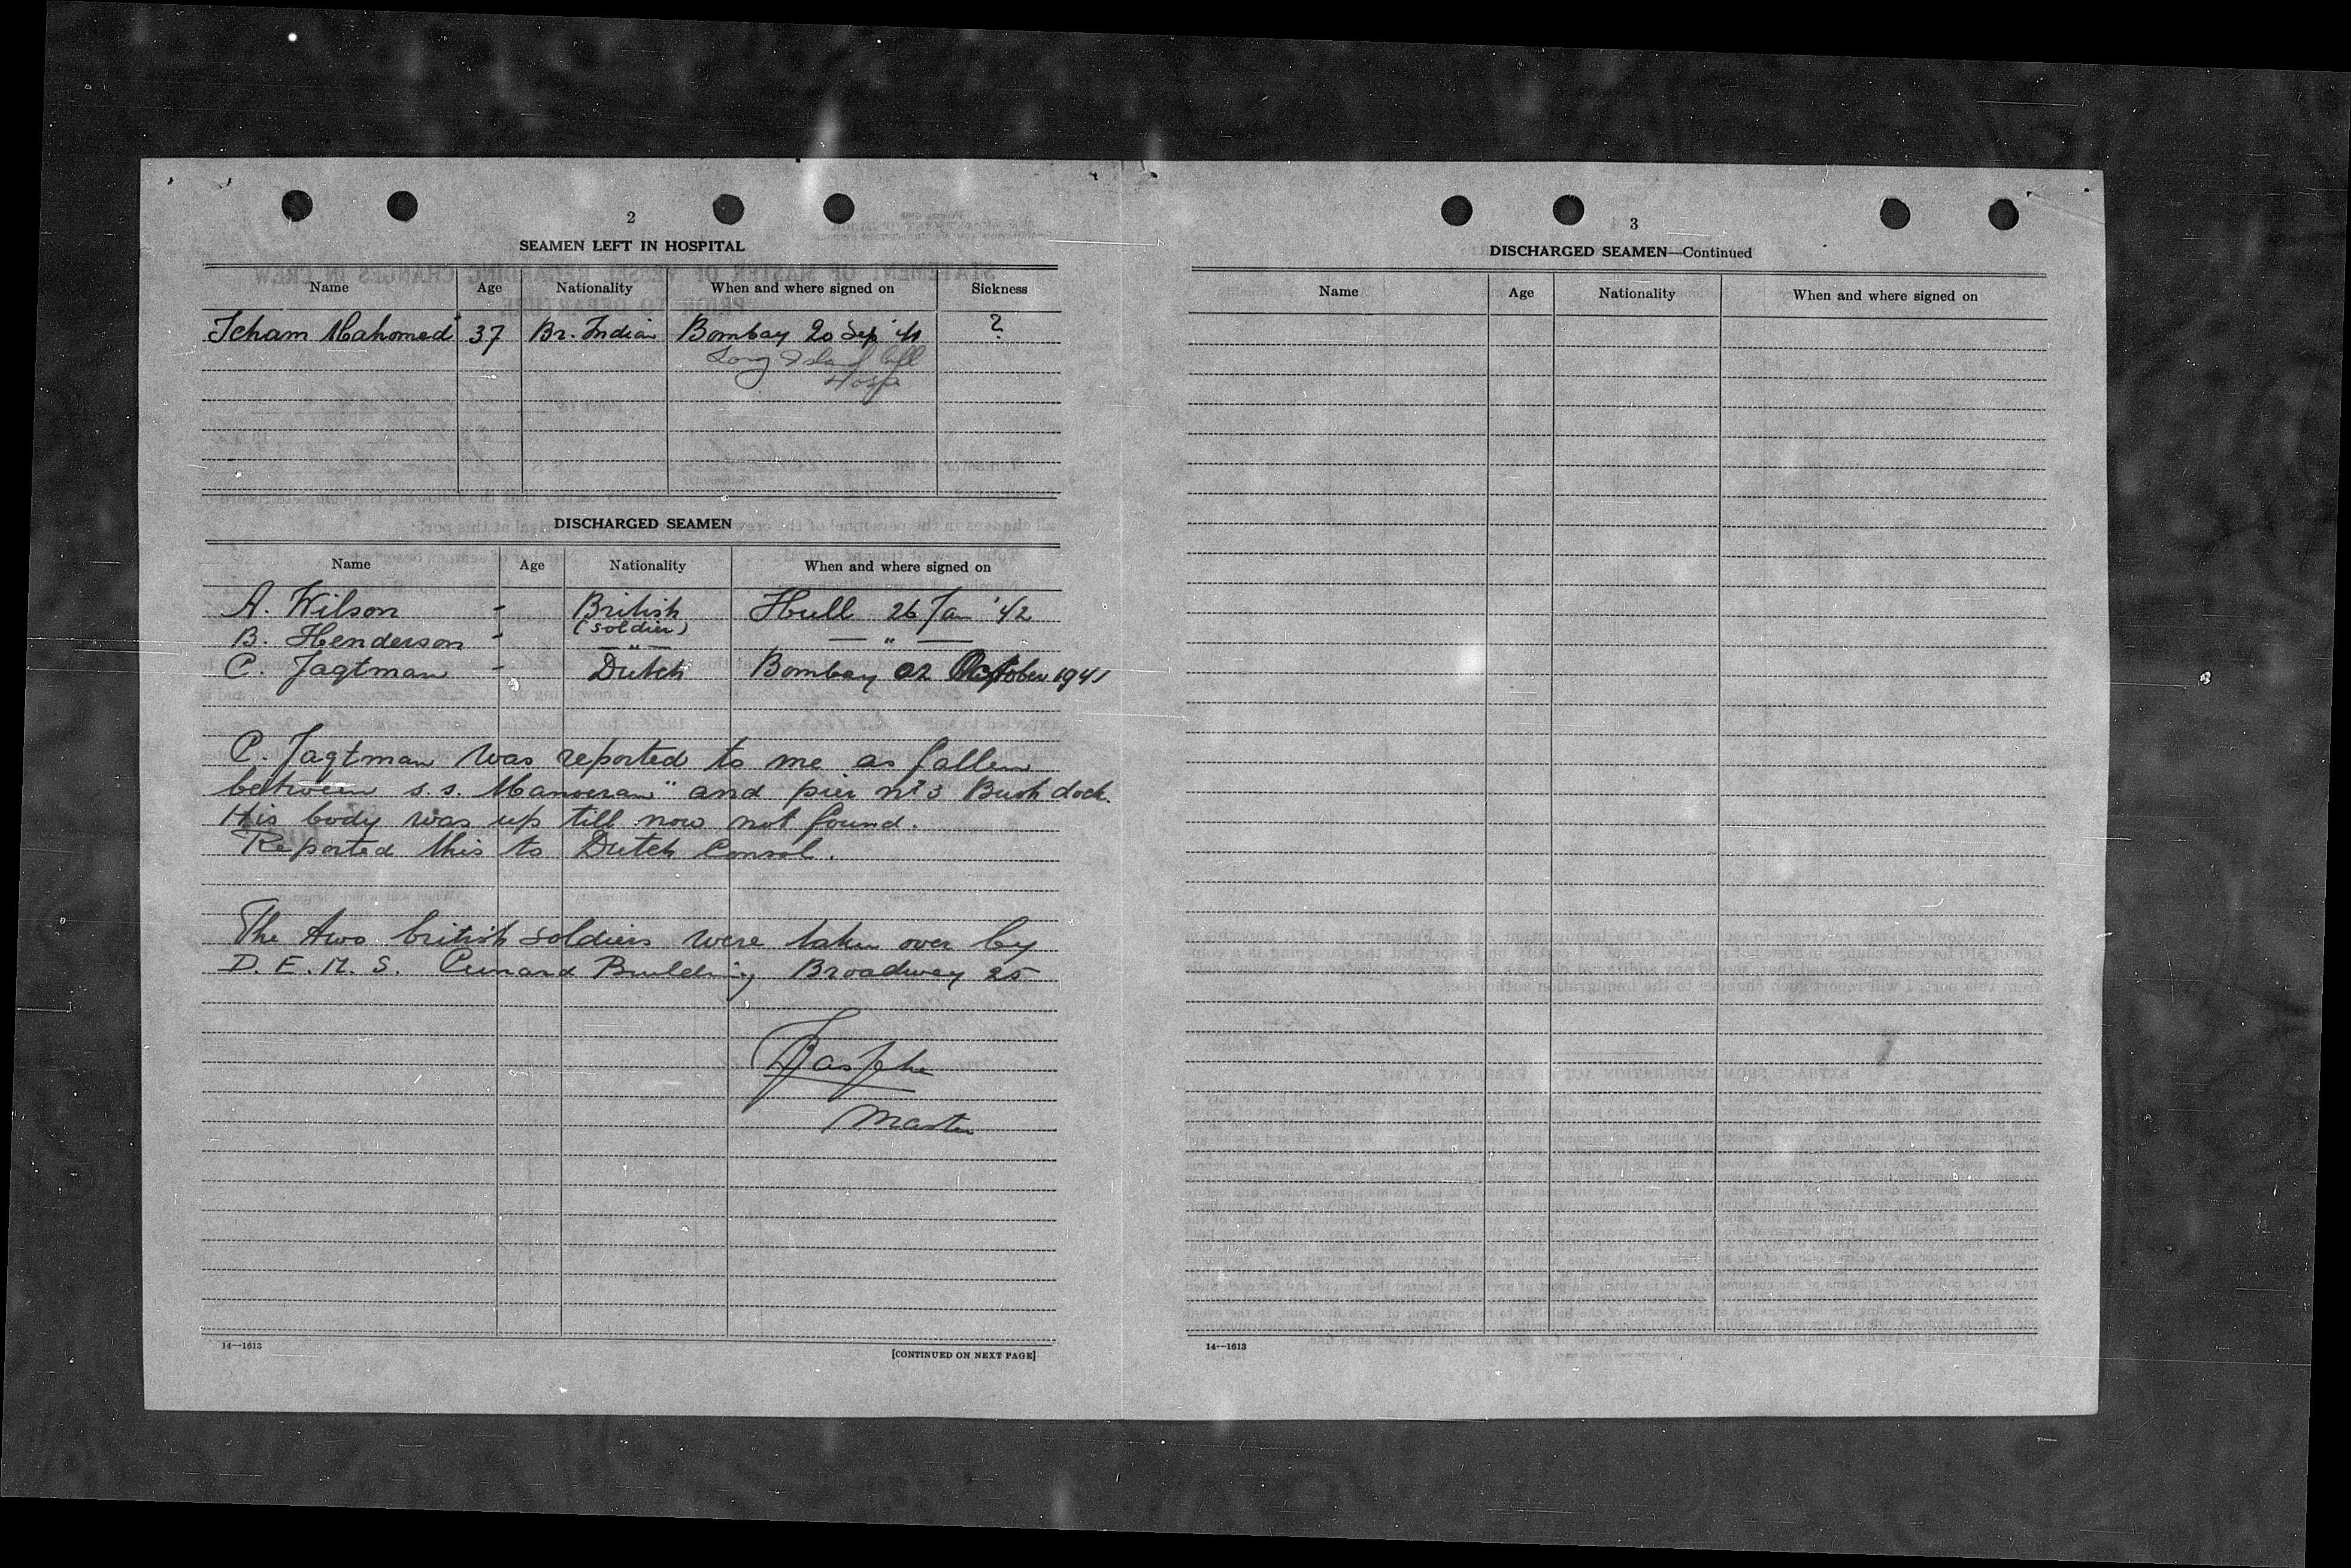 2
SEAMEN LEFT IN HOSPITAL
Name Age Nationality When and where signed on Sickness
Icham Mahomed 37 Br. Indian Bombay 20 Sep '41 ?
Long Island Coll
Hosp
DISCHARGED SEAMEN
Name Age Nationality When and where signed on
A. Wilson - British Hull 26 Jan '42
(soldier)
B. Henderson - — " — — " —
C. Jagtman - Dutch Bombay 02 October 1941
C. Jagtman was reported to me as fallen
between s.s. Manoeran" and pier no 3 Bush dock.
His body was up till now not found.
Reported this to Dutch Consul.
The two british soldiers were taken over by
D. E. M. S. Cunard Building Broadway 25
Master
14—1613
[CONTINUED ON NEXT PAGE]
3
DISCHARGED SEAMEN—Continued
Name Age Nationality When and where signed on
14—1613